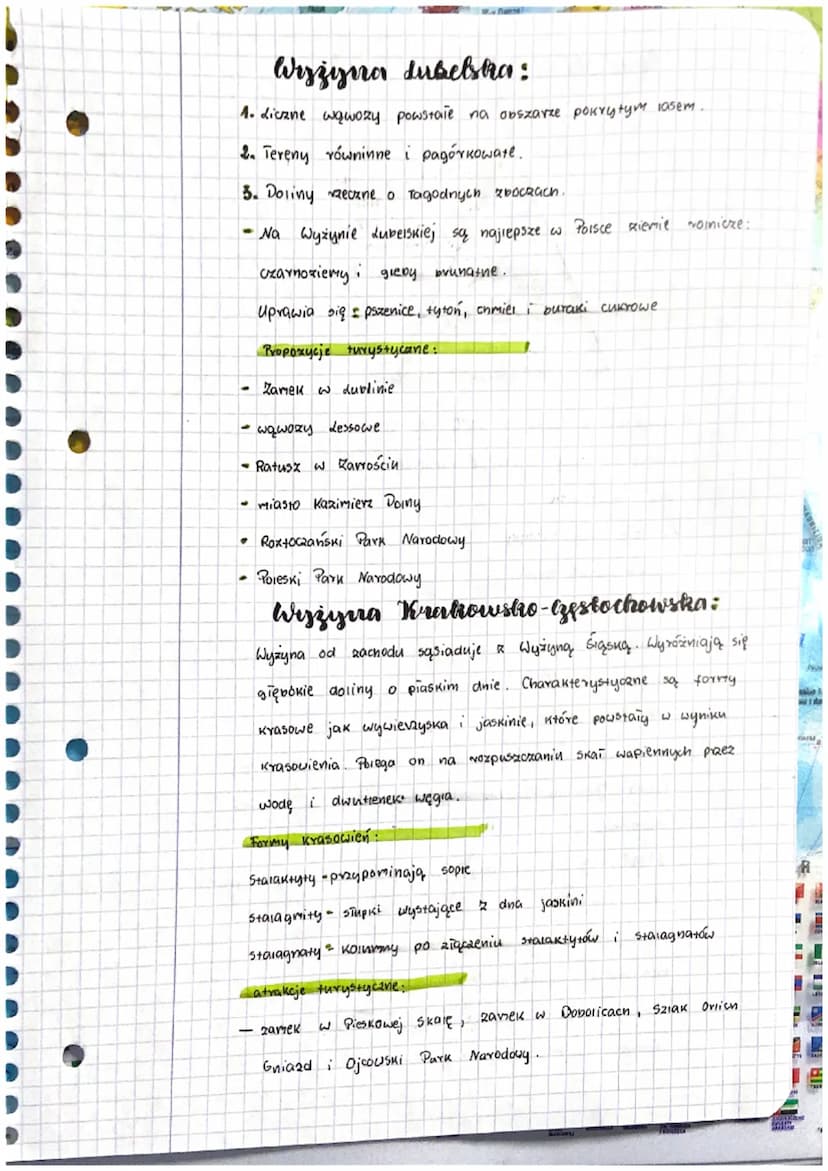 Wyżyna Lubelska:
1. Liczne wąwozy powstałe na obszarze pokrytym lasem.
2. Tereny równinne i pagórkowate.
3. Doliny rzeczne o łagodnych zboczach.
- Na Wyżynie Lubelskiej są najlepsze w Polsce ziemie rolnicze:
czarnoziemy i gleby brunatne.
Uprawia się: pszenice, tytoń, chmiel i buraki cukrowe
Propozycje turystyczne:
- Zamek w Lublinie
- wąwozy Lessowe
- Ratusz w Zamościu
- miasto Kazimierz Dolny
• Roztoczański Park Narodowy
- Poleski Park Narodowy
Wyżyna Krakowsko-Częstochowska:
Wyżyna od zachodu sąsiaduje z Wyżyną Śląską. Wyróżniają się
głębokie doliny o płaskim dnie. Charakterystyczne są formy
krasowe jak wywierzyska i jaskinie, które powstały w wyniku
krasowienia. Polega on na rozpuszczaniu skał wapiennych przez
wodę i dwutlenek węgla.
Formy krasowień:
Stalaktyty - przypominają sople
stalagmity - słupki wystające z dna jaskini
stalagnaty - kolumny po złączeniu stalaktytów i stalagnatów
atrakcje turystyczne:
— zamek w Pieskowej Skale, zamek w Bobolicach, Szlak Orlich
Gniazd i Ojcowski Park Narodowy.